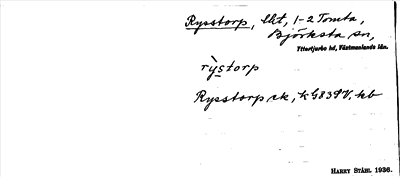 Rysstorp, lht, 1-2 Tomta,
Björksta sn,
Yttertjurbo hd, Västmanlands län.
rỳstorp
Rysstorp ek, k G839V. kb
HARRY STÅHL 1936.